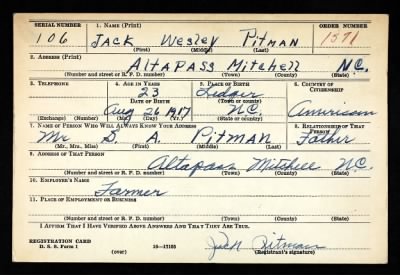 SERIAL NUMBER 1. NAME (Print) ORDER NUMBER
106 JACK Wesley PitMAN 1371
(First) (Middle) (Last)
2. ADDRESS (Print)
AltaPASS Mitchell N.C.
(Number and street or R. F. D. number) (Town) (County) (State)
3. TELEPHONE 4. AGE IN YEARS 5. PLACE OF BIRTH 6. COUNTRY OF CITIZENSHIP
23 Ledger
DATE OF BIRTH (Town or county)
Aug 26 1917 N.C. American
(Exchange) (Number) (Mo.) (Day) (Yr.) (State or country)
7. NAME OF PERSON WHO WILL ALWAYS KNOW YOUR ADDRESS 8. RELATIONSHIP OF THAT PERSON
Mr S. A. PitMAN Father
(Mr., Mrs., Miss) (First) (Middle) (Last)
9. ADDRESS OF THAT PERSON
Altapass Mitchell N.C.
(Number and street or R. F. D. number) (Town) (County) (State)
10. EMPLOYER'S NAME
Farmer
11. PLACE OF EMPLOYMENT OR BUSINESS
(Number and street or R. F. D. number) (Town) (County) (State)
I AFFIRM THAT I HAVE VERIFIED ABOVE ANSWERS AND THAT THEY ARE TRUE.
REGISTRATION CARD
D. S. S. Form 1 (over) 16—17105 Jack Pitman
(Registrant's signature)